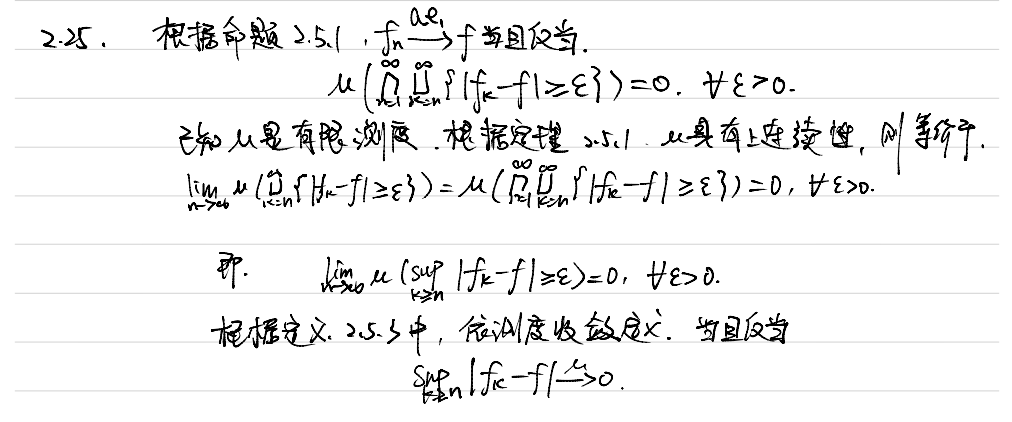 2.25. 根据命题 2.5.1, fₙ —a.e.→ f 当且仅当.
μ(⋂_{n=1}^∞ ⋃_{k=n}^∞ {|f_k-f|≥ε})=0. ∀ε>0.
已知 μ是有限测度. 根据定理 2.5.1. μ具有上连续性, 则等价于.
lim_{n→∞} μ(⋃_{k=n}^∞ {|f_k-f|≥ε})=μ(⋂_{n=1}^∞ ⋃_{k=n}^∞ {|f_k-f|≥ε})=0, ∀ε>0.
即. lim_{n→∞} μ(sup_{k≥n} |f_k-f|≥ε)=0, ∀ε>0.
根据定义. 2.5.3中, 依测度收敛定义. 当且仅当
sup_{k≥n} |f_k-f| —μ→ 0.